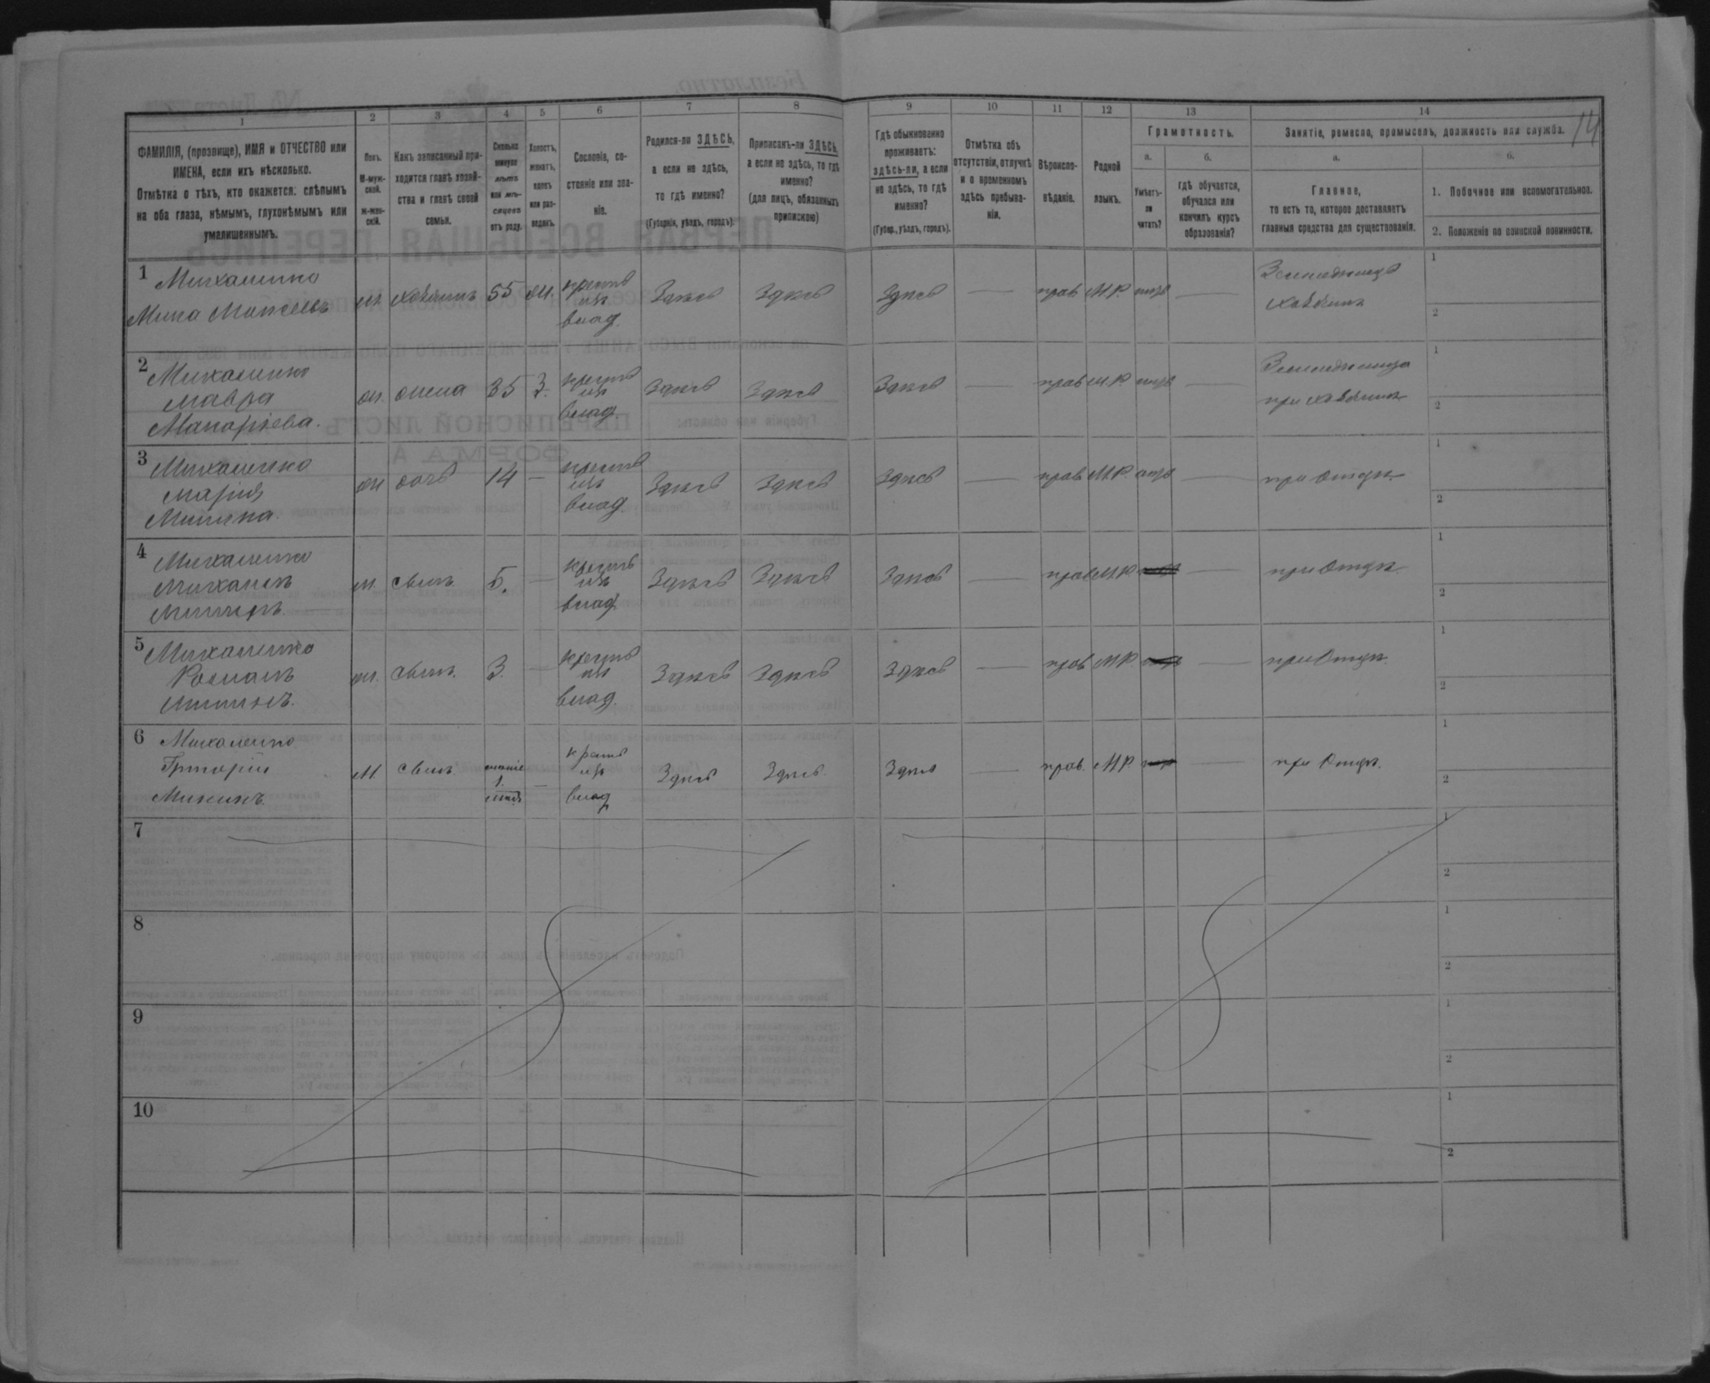 14
1 2 3 4 5 6 7 8 9 10 11 12 13 14
ФАМИЛІЯ, (прозвище), ИМЯ и ОТЧЕСТВО или
ИМЕНА, если ихъ нѣсколько.
Отмѣтка о тѣхъ, кто окажется: слѣпымъ
на оба глаза, нѣмымъ, глухонѣмымъ или
умалишеннымъ.
Полъ.
М-муж-
ской.
Ж-жен-
скій.
Какъ записанный при-
ходится главѣ хозяй-
ства и главѣ своей
семьи.
Сколько
минуло
лѣтъ
или мѣ-
сяцевъ
отъ роду.
Холостъ,
женатъ,
вдовъ
или раз-
веденъ.
Сословіе, со-
стояніе или зва-
ніе.
Родился-ли ЗДѢСЬ,
а если не здѣсь,
то гдѣ именно?
(Губернія, уѣздъ, городъ).
Приписанъ-ли ЗДѢСЬ,
а если не здѣсь, то гдѣ
именно?
(для лицъ, обязанныхъ
припискою)
Гдѣ обыкновенно
проживаетъ:
здѣсь-ли, а если
не здѣсь, то гдѣ
именно?
(Губер., уѣздъ, городъ).
Отмѣтка объ
отсутствіи, отлучкѣ
и о временномъ
здѣсь пребыва-
ніи.
Вѣроиспо-
вѣданіе.
Родной
языкъ.
Грамотность.
а.
Умѣетъ-
ли
читать?
б.
гдѣ обучается,
обучался или
кончилъ курсъ
образованія?
Занятіе, ремесло, промыселъ, должность или служба.
а.
Главное,
то есть то, которое доставляетъ
главныя средства для существованія.
б.
1. Побочное или вспомогательное.
2. Положеніе по воинской повинности.
1 Михаленко
Мина Моисеевъ
м хозяинъ 55 крестья
изъ
влад. Здѣсь Здѣсь Здѣсь — прав М.Р. — Земледѣлецъ
хозяинъ
2 Михаленко
Мавра
Макарьева.
жена 35 крестья
изъ
влад Здѣсь Здѣсь Здѣсь — прав М.Р. —
при хозяинѣ
3 Михаленко
Марія
Минина.
дочь 14 — крестья
изъ
влад Здѣсь Здѣсь Здѣсь — прав М.Р. — при отцѣ
4 Михаленко
Михаилъ
Мининъ
м сынъ 5. — крестья
изъ
влад Здѣсь Здѣсь Здѣсь — прав М.Р. — при отцѣ
5 Михаленко
Романъ
Мининъ.
м. сынъ. 3. — крестья
изъ
влад Здѣсь Здѣсь Здѣсь — прав М.Р. — при отцѣ
6 Михаленко
Григорій
Мининъ
М сынъ — крестья
изъ
влад Здѣсь Здѣсь Здѣсь — прав. М.Р. — при отцѣ.
7
8
9
10